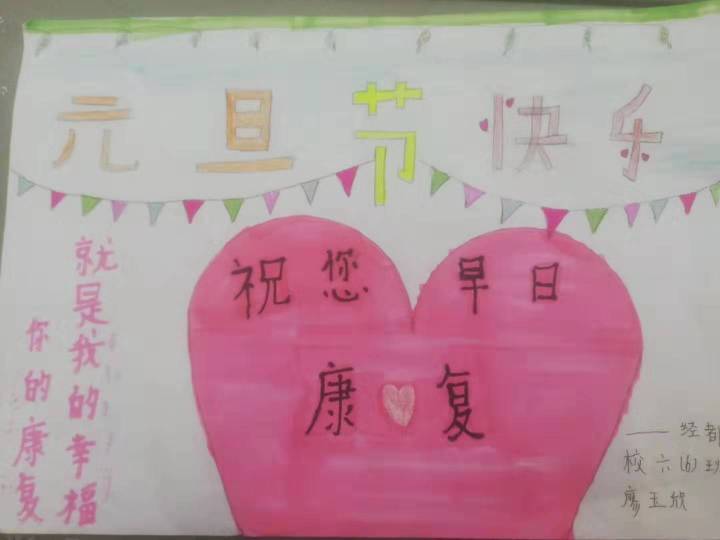 元旦节快乐
祝您早日
康复
你的康复
就是我的幸福
——经都
校六(6)班
廖玉欣